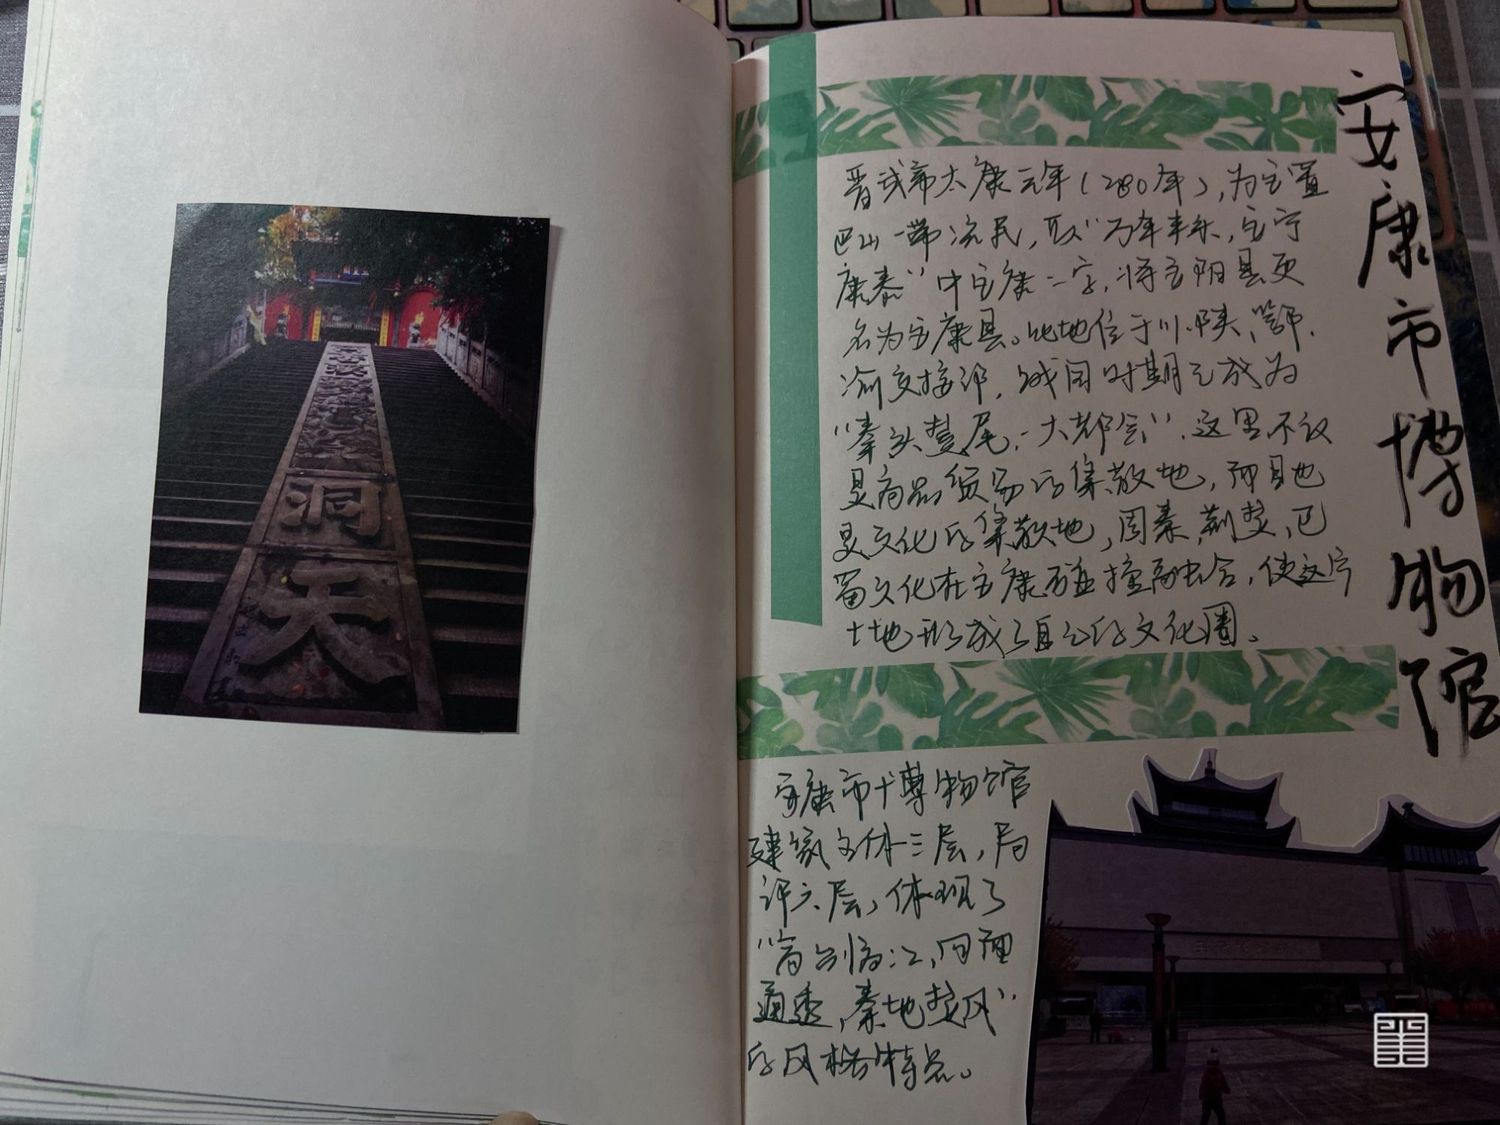 洞
天
安康市博物馆
晋武帝太康元年(280年),为安置
巴山一带流民,取"万年丰乐,安宁
康泰"中安康二字,将安阳县更
名为安康县。此地位于川、陕、鄂、
渝交接部,战国时期已成为
"秦头楚尾,一大都会",这里不仅
是商品贸易的集散地,而且也
是文化的集散地,周秦,荆楚,巴
蜀文化在安康碰撞融合,使这片
土地形成了自己的文化圈。
安康市博物馆
建筑主体三层,局
部六层,体现了
"高台临江,回望
通透,秦地楚风"
的风格特点。